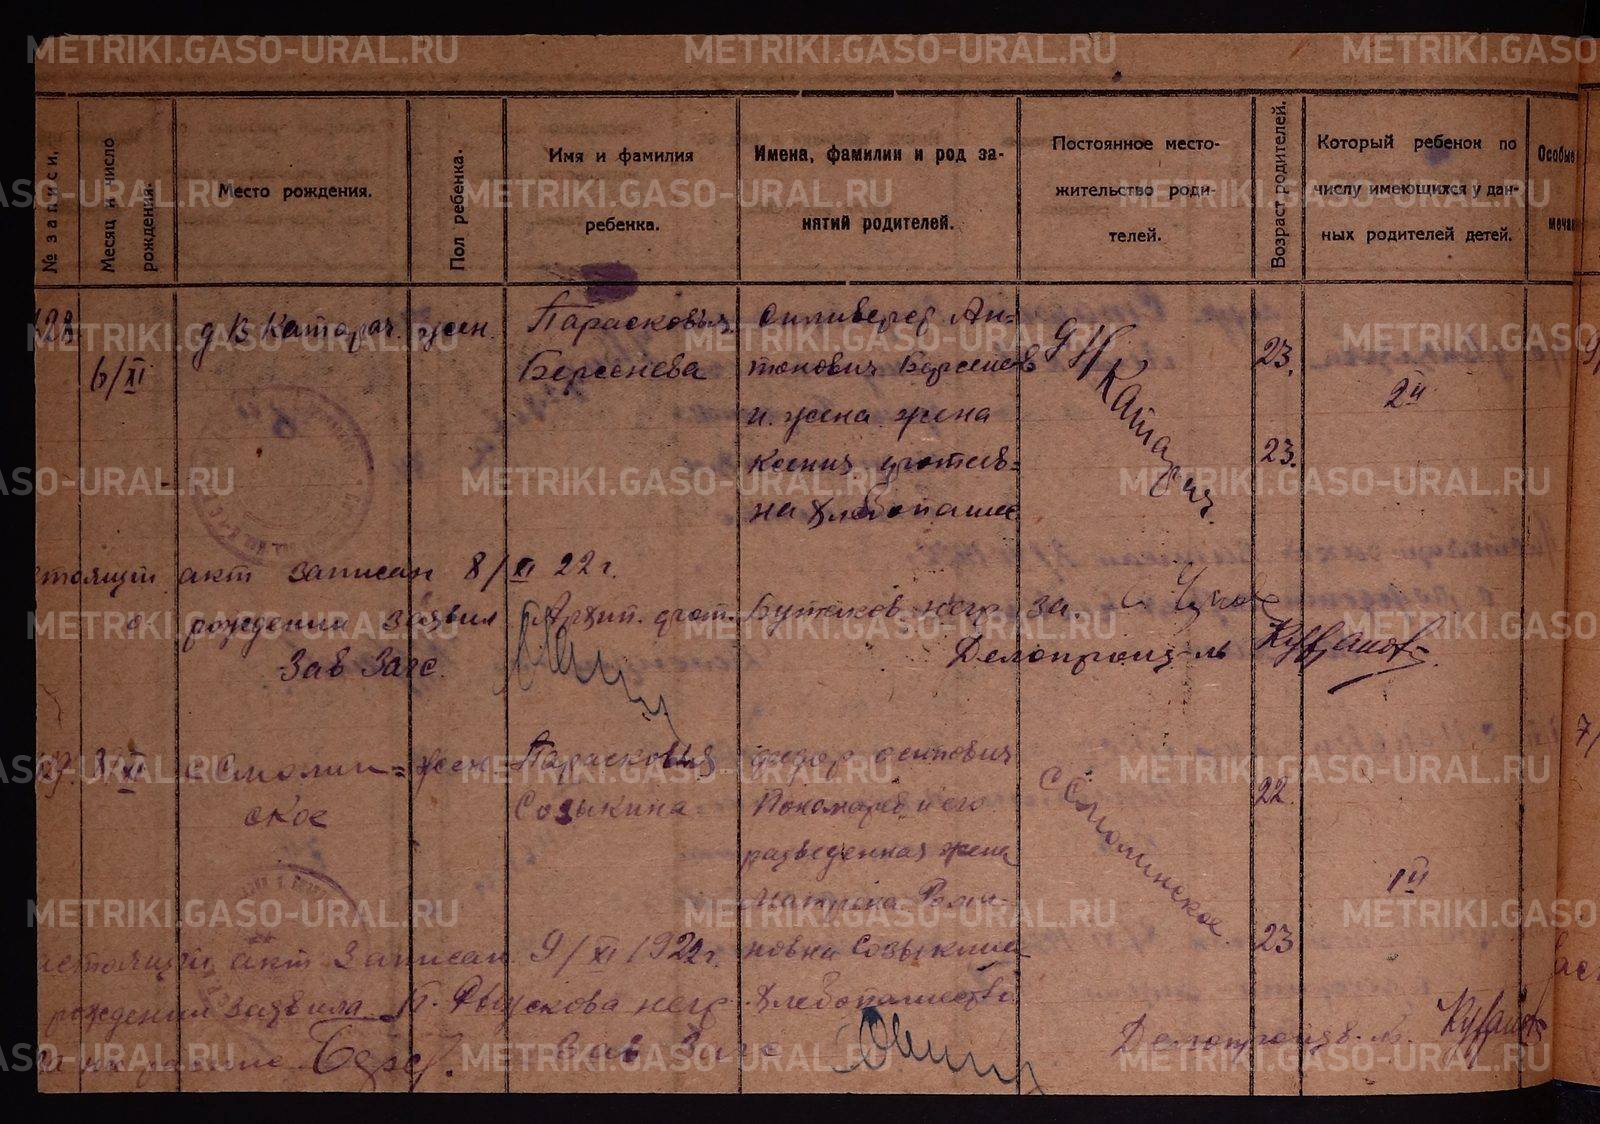 METRIKI.GASO-URAL.RU
№ записи.
Месяц и число рождения.
Место рождения.
Пол ребенка.
Имя и фамилия
ребенка.
Имена, фамилии и род за-
нятий родителей.
Постоянное место-
жительство роди-
телей.
Возраст родителей.
Который ребенок по
числу имеющихся у дан-
ных родителей детей.
Особые
мечан
128
6/XI
д В Катарач.
жен.
Парасковья
Берсенева
Силиверст Ан-
тонович Берсенев
и жена
Ксения
на Хлебопаше
Катарач
23.
23.
2й
стоящий акт записан 8/XI 22 г.
о рождении заявил Архип. Бутаков негр за.
Зав Загс.
Делопроизв-ль
3/XI
с Смолин=
ское
жен
Парасковья
Созыкина
Федор Осипович
Пономарев и его
разведенная жена
Матрена Роми-
новна Созыкина
Хлебопашество
с Смолинское.
22.
23
1й
астоящий акт записан 9/XI 1922 г.
рождении заявила П. негр.
Зав Загс
Делопроизв-ль.